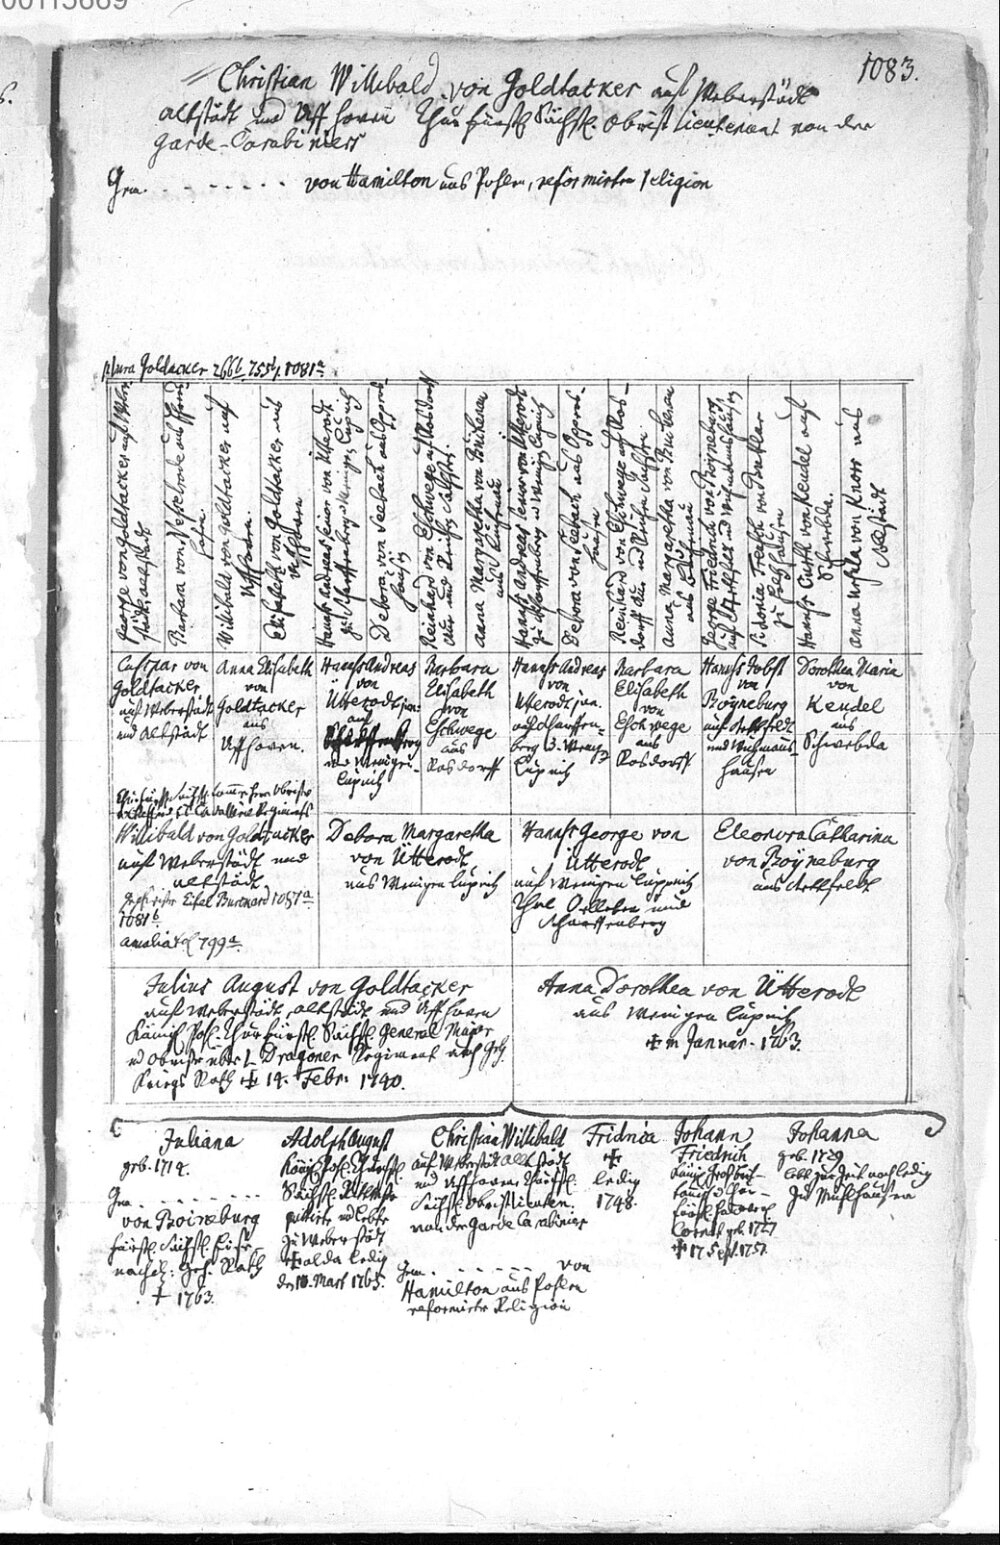 00115669
1083.
Christian Willibald von Goldtacker auf Weberstädt
altstädt und Uff hoven Chur fürstl. Sächs. Obrist Lieutenant von der
Garde-Carabiniers
Gem. - - - - - - von Hamilton aus Pohlen, reformirter Religion
plura Goldacker 266b. 755b, 1081a
George von Goldtacker auf Weberstädt, altstädt
Barbara von Nesselrode aus
Willibald von Goldtacker auf Uffhoven.
Elisabeth von Goldtacker aus Uffhoven
Hannß Andreas senior von Utterodt zu Scharffenberg u Wenigen Lupnitz
Debora von Seebach aus Oppers-
hausen
Reinhard von Eschwege auf Rosdorff
Aue und Reichen Sachsen.
Anna Margaretha von Buchenau aus Buchenau
Hannß Andreas senior von Utterodt zu Scharffenberg u Wenigen Lupnitz
Debora von Seebach aus Oppers-
hausen
Reinhard von Eschwege auf Ros-
dorff Aue und Reichen Sachsen.
Anna Margaretha von Buchenau aus Buchenau
George Friedrich von Boyneburg auf Stettfeld und Wichmanshausen
Sidonia von Buttlar
Hannß Curth von Keudel auf Schwebda.
Anna Ursula von Knorr aus
Caspar von
Goldtacker
auf Weberstädt
und Altstädt
Anna Elisabeth
von
Goldtacker
aus
Uffhoven.
Hannß Andreas
von
Utterodt jun:
auf
Scharffenberg
und Wenigen-
Lupnitz
Barbara
Elisabeth
von
Eschwege
aus
Rosdorff
Hannß Andreas
von
Utterodt jun.
auf Scharffen-
berg u. Wenig
Lupnitz
Barbara
Elisabeth
von
Eschwege
aus
Rosdorff
Hannß Jobst
von
Boyneburg
auf Stettfeldt
und Wichmans-
hausen
Dorothea Maria
von
Keudel
aus
Schwebda
Willibald von Goldtacker
auf Weberstädt und
altstädt.
Burckard 1081a
1081b
Amalia 799a
Debora Margaretha
von Ütterodt
aus Wenigen Lupnitz
Hannß George von
Ütterodt
auf Wenigen Lupnitz
Thal und
Scharffenberg
Eleonora Catharina
von Boyneburg
aus Stettfeldt
Julius August von Goldtacker
auf Weberstädt, altstädt und Uff hoven
Königl. Pohl. Churfürstl. Sächs. General Major
Obrister über 1. Dragoner Regiment auch Geh.
Kriegs Rath ✝ 14. Febr. 1740.
Anna Dorothea von Ütterodt
aus Wenigen Lupnitz
✝ im Januar. 1763.
Juliana
geb. 1714.
Gem. - - - - - - -
von Boineburg
fürstl. Sächs. Eise-
nach: Geh. Rath
✝ 1763.
Adolph August
Königl. Pohl. Churfürstl.
Sächs. Rittmstr
quittirte und lebte
zu Weberstädt
✝ alda ledig
den 10. Mart 1765.
Christian Willibald
auf Weberstädt altstädt
und Uffhoven Churfürstl.
Sächs. Obristlieuten.
von der Garde Carabinier
Gem. - - - - - - von
Hamilton aus Pohlen
reformirte Religion
Fridrica
✝
ledig
1748.
Johann
Friedrich
Königl. Grosbrit-
Cornet geb. 1727
✝ 17 Sept. 1757.
Johanna
geb. 1729
lebt zur Zeit noch ledig
zu Mühlhausen